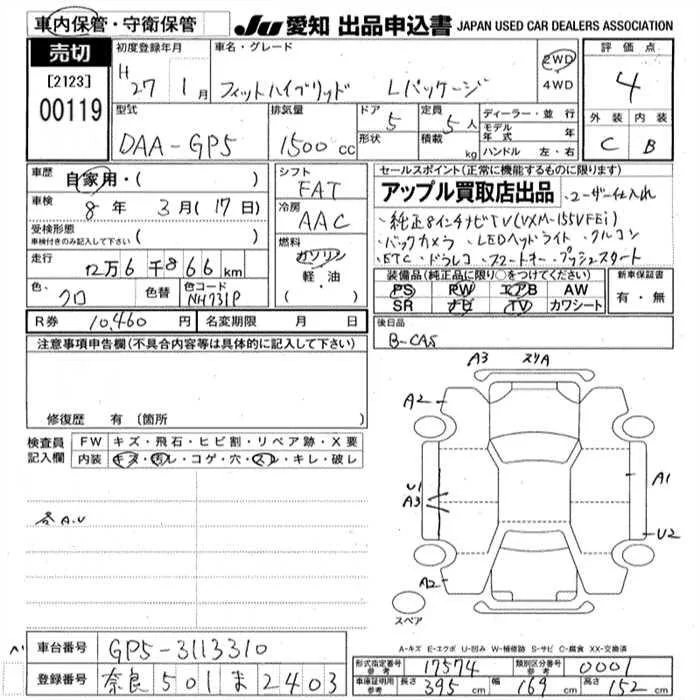 車内保管・守衛保管
JU 愛知 出品申込書 JAPAN USED CAR DEALERS ASSOCIATION
売切
[2123]
00119
初度登録年月
H27 1月
車名・グレード
フィットハイブリッド Lパッケージ
2WD
4WD
評価点
4
外装 内装
C B
型式
DAA-GP5
排気量
1500 cc
ドア 5
形状
定員 5人
積載 kg
ディーラー・並行
モデル年式 年
ハンドル 左・右
車歴
自家用・( )
車検
8年 3月(17日)
受検形態
車検付きのみ記入して下さい ( )
走行
12万6千866km
色
クロ
色替
色コード
NH731P
シフト
FAT
冷房
AAC
燃料
ガソリン
軽・油
( )
セールスポイント(正常に機能するものに限ります)
アップル買取店出品 ・ユーザー仕入れ
・純正8インチナビTV(VXM-155VFEi)
・バックカメラ ・LEDヘッドライト ・クルコン
・ETC ・ドラレコ ・スマートキー ・プッシュスタート
装備品(純正品に限り○をつけてください)
PS PW エアB AW
SR ナビ TV カワシート
新車保証書
有・無
R券 10,460円
名変期限 月 日
後日品
B-CAS
注意事項申告欄(不具合内容等は具体的に記入して下さい)
修復歴 有 (箇所 )
検査員記入欄
FW キズ・飛石・ヒビ割・リペア跡・X要
内装 キズ・汚レ・コゲ・穴・スレ・キレ・破レ
各A.U
A3 スリA
A2
U1
A3
A1
U2
A2
スペア
A-キズ E-エクボ U-凹み W-補修跡 S-サビ C-腐食 XX-交換済
車台番号 GP5-3113310
登録番号 奈良 501 ま 2403
形式指定番号 参考 17574
類別区分番号 参考 0001
車庫証明用 参考 長さ 395 cm 幅 169 cm 高さ 152 cm